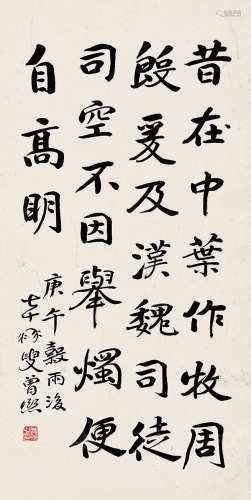 昔在中葉作牧周
殷爰及漢魏司徒
司空不因舉燭便
自髙明
庚午穀雨後
七十叟曾熙